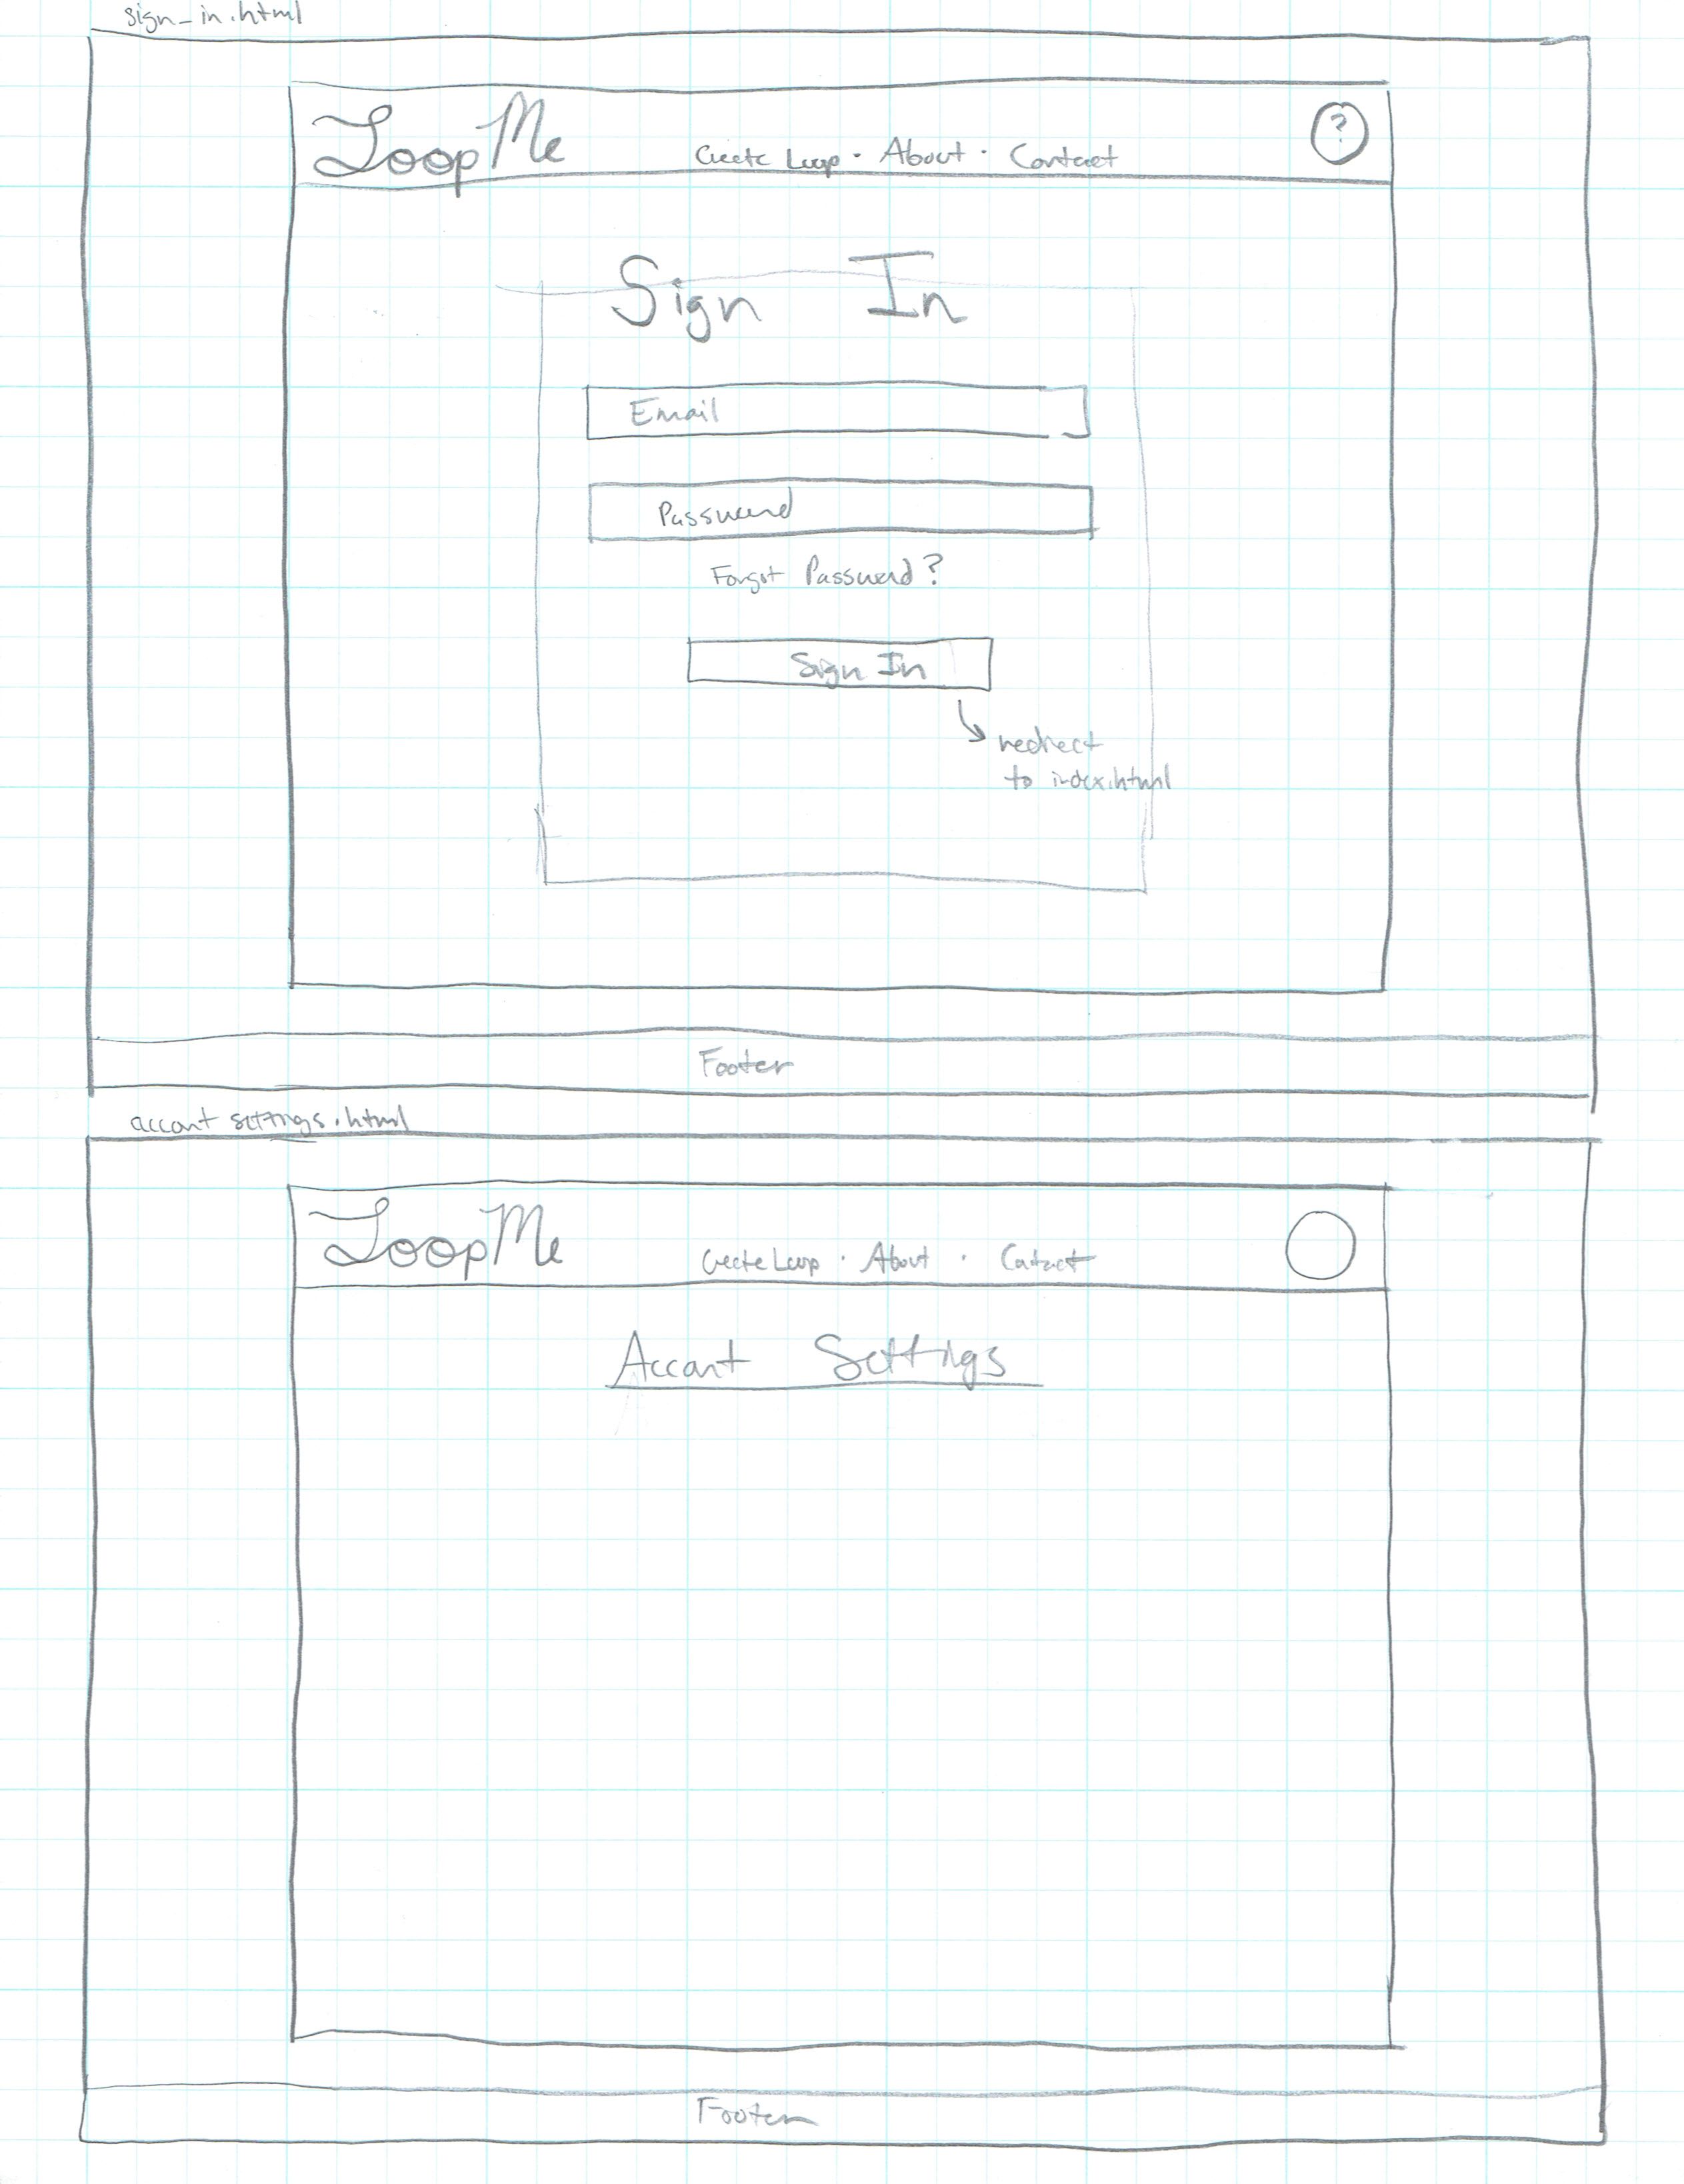 sign_in.html
LoopMe
Create Loop · About · Contact
?
Sign In
Email
Password
Forgot Password?
Sign In
redirect
to index.html
Footer
account settings.html
LoopMe
Create Loop · About · Contact
Account Settings
Footer